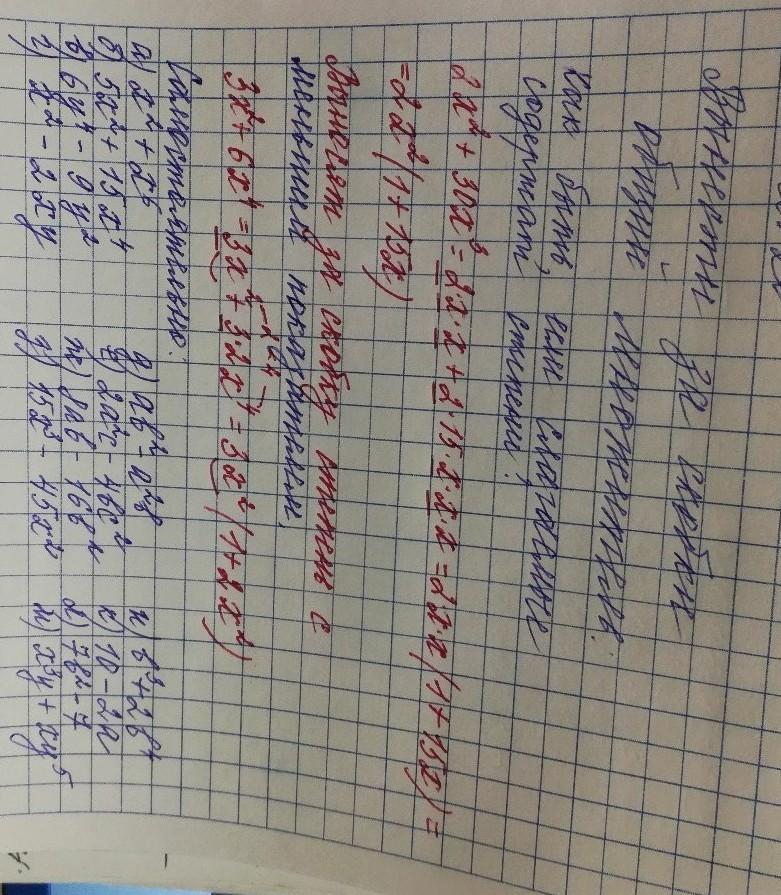 Вынесение за скобки
общих множителей.
Как быть, если слагаемые
содержат степени?
2x² + 30x³ = 2x·x + 2·15·x·x·x = 2x·x(1+15x) =
= 2x²(1+15x)
Выносят за скобку степень с
меньшим показателем.
3x² + 6x⁴ = 3x² + 3·2x⁴ = 3x²(1+2x²)
Самостоятельно:
а) x² + x⁵ д) ab² - a²b и) b³ + 2b⁴
б) 5x² + 15x⁴ е) 2a²c - 4bc² к) 10 - 2a
в) 6y⁴ - 9y² ж) 8ab - 16b² л) 7b² - 7
г) x² - 2xy з) 15x³ - 45x² м) x³y + xy⁵